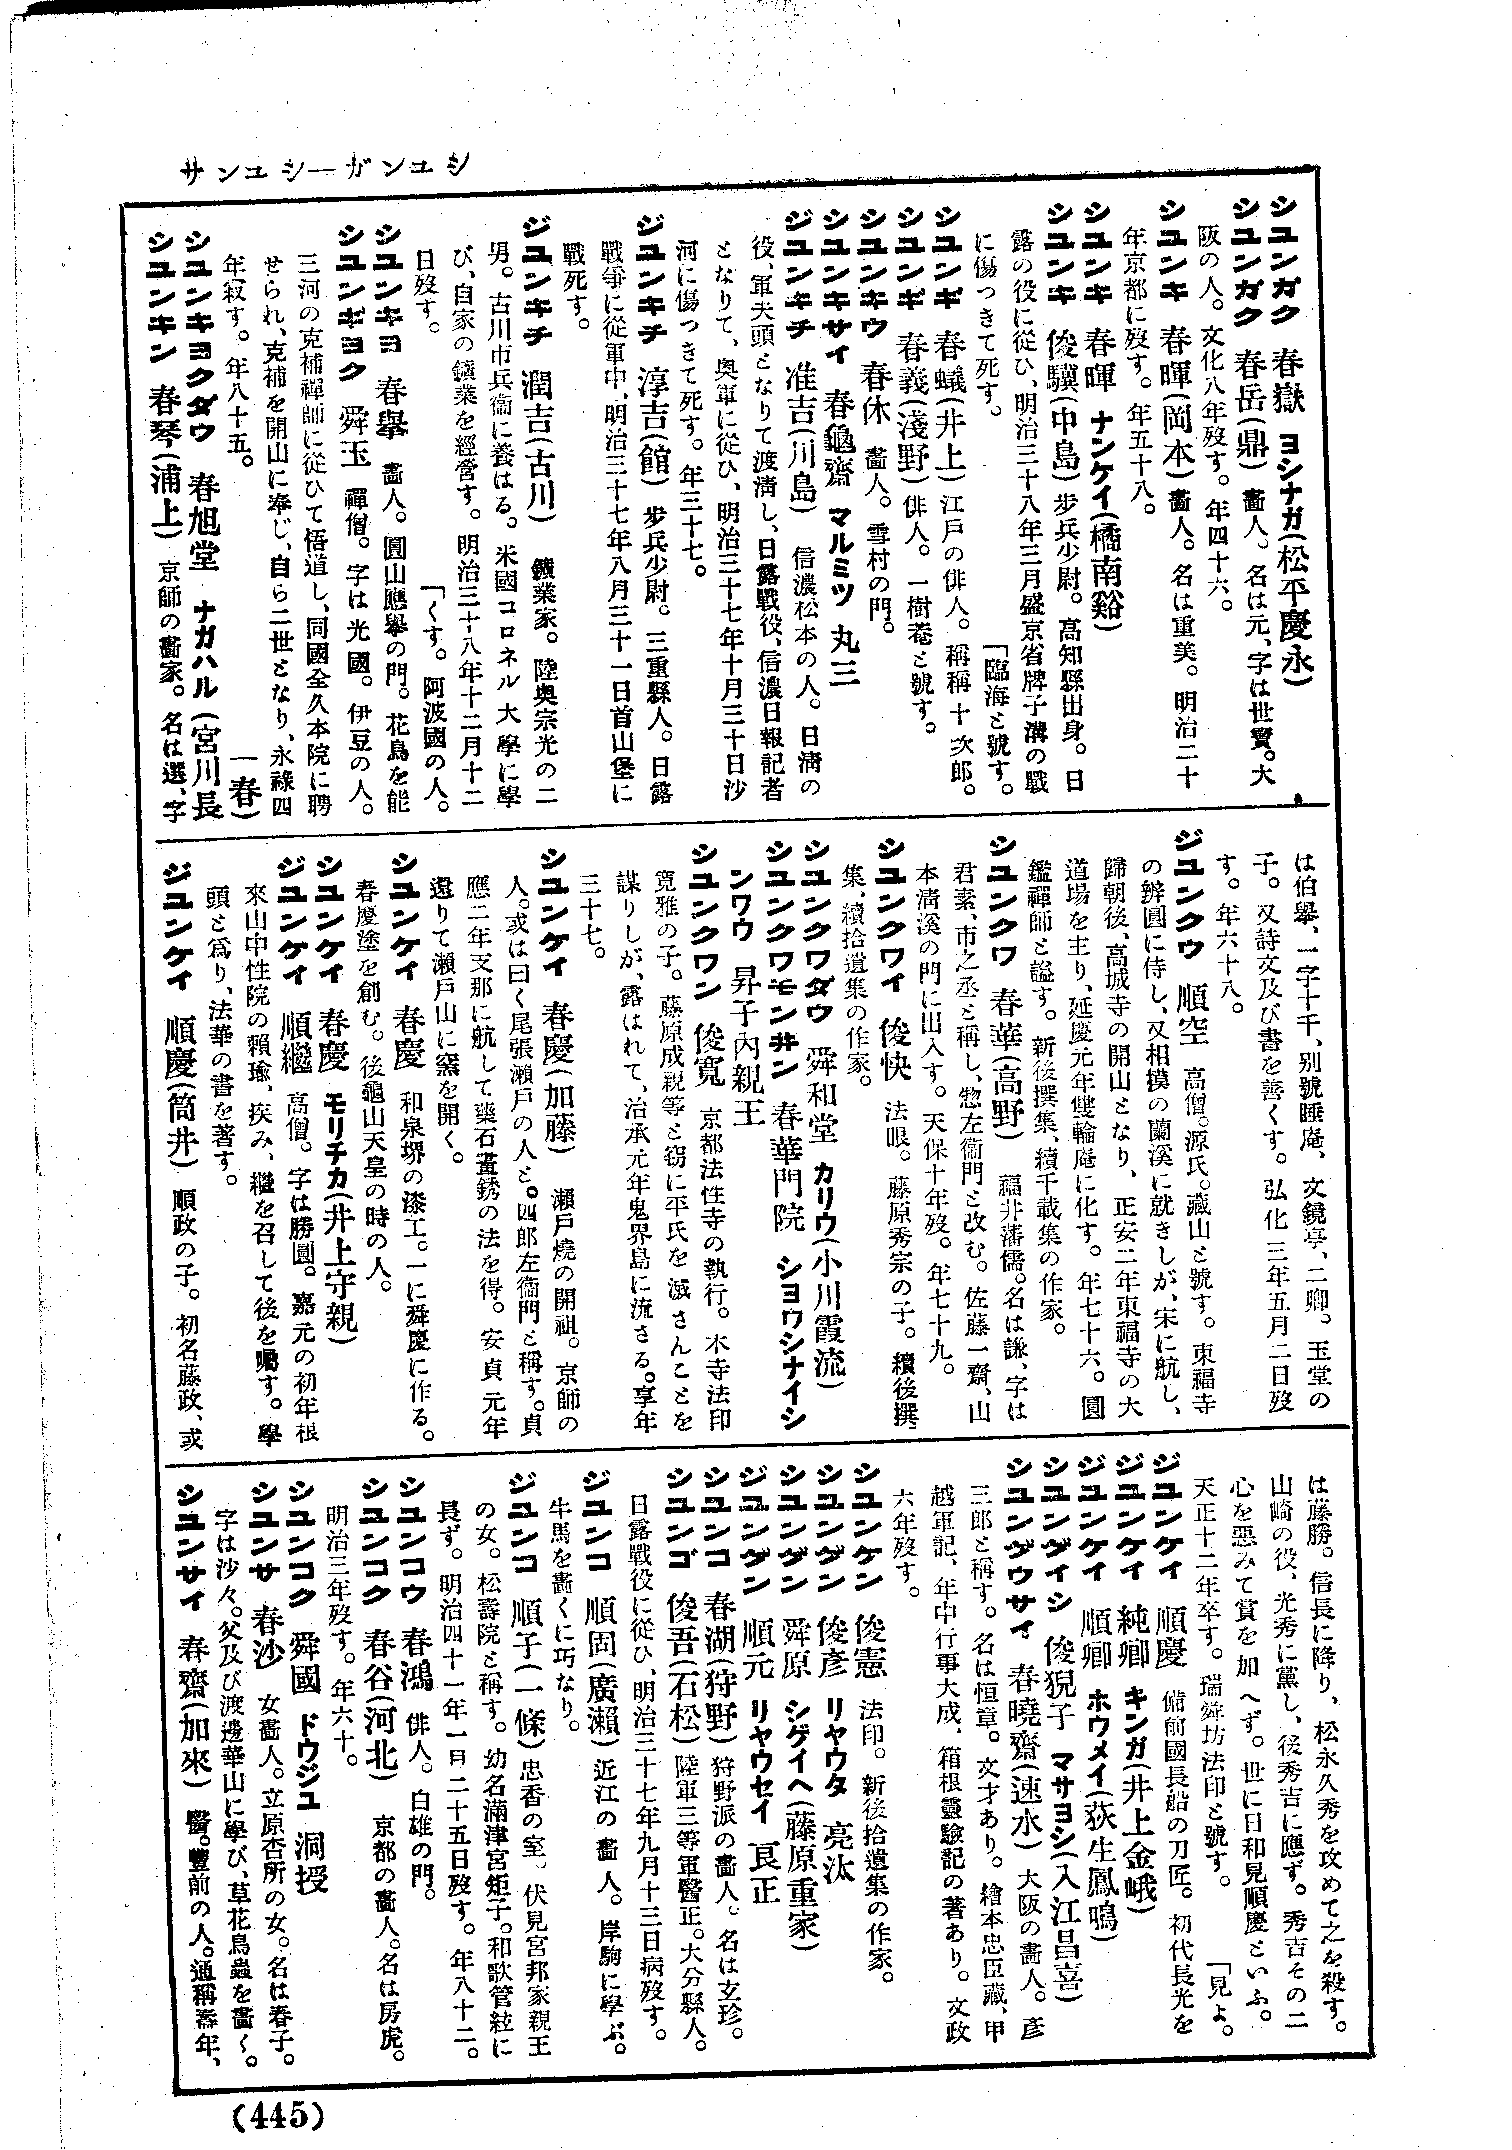 シユンガーシユンサ
シユンガク　春嶽　ヨシナガ(松平慶永)
シユンガク　春岳(鼎)　畵人。名は元、字は世寶。大
阪の人。文化八年歿す。年四十六。
シユンキ　春暉(岡本)畵人。名は重美。明治二十
年京都に歿す。年五十八。
シユンキ　春暉　ナンケイ(橘南谿)
シユンキ　俊驥(中島)步兵少尉。高知縣出身。日
露の役に從ひ、明治三十八年三月盛京省牌子溝の戰
に傷つきて死す。　「臨海と號す。
シユンギ　春蟻(井上)江戶の俳人。稱稱十次郎。
シユンギ　春義(淺野)俳人。一樹菴と號す。
シユンキウ　春休　畵人。雪村の門。
シユンキサイ　春龜齋　マルミツ　丸三
ジユンキチ　准吉(川島)　信濃松本の人。日淸の
役、軍夫頭となりて渡淸し、日露戰役、信濃日報記者
となりて、奥軍に從ひ、明治三十七年十月三十日沙
河に傷つきて死す。年三十七。
ジユンキチ　淳吉(館)　步兵少尉。三重縣人。日露
戰爭に從軍中、明治三十七年八月三十一日首山堡に
戰死す。
ジユンキチ　潤吉(古川)　鑛業家。陸奥宗光の二
男。古川市兵衞に養はる。米國コロネル大學に學
び、自家の鑛業を經營す。明治三十八年十二月十二
日歿す。　「くす。阿波國の人。
シユンキヨ　春擧　畵人。圓山應擧の門。花鳥を能
シユンギヨク　舜玉　禪僧。字は光國。伊豆の人。
三河の克補禪師に從ひて悟道し、同國全久本院に聘
せられ、克補を開山に奉じ、自ら二世となり、永祿四
年寂す。年八十五。　一春)
シユンキヨクダウ　春旭堂　ナガハル(宮川長
シユンキン　春琴(浦上)　京師の畵家。名は選、字
は伯擧、一字十千、別號睡庵、文鏡亭、二卿。玉堂の
子。及詩文及び書を善くす。弘化三年五月二日歿
す。年六十八。
ジユンクウ　順空　高僧。源氏。藏山と號す。東福寺
の辨圓に侍し、又相摸の蘭溪に就きしが、宋に航し、
歸朝後、高城寺の開山となり、正安二年東福寺の大
道場を主り、延慶元年雙輪庵に化す。年七十六。圓
鑑禪師と謚す。新後撰集、續千載集の作家。
シユンクワ　春華(高野)　福井藩儒。名は謙、字は
君素、市之丞と稱し、惣左衞門と改む。佐藤一齋、山
本淸溪の門に出入す。天保十年歿。年七十九。
シユンクワイ　俊快　法眼。藤原秀宗の子。續後撰
集、續拾遺集の作家。
シユンクワダウ　舜和堂　カリウ(小川霞流)
シユンクワモン井ン　春華門院　シヨウシナイシ
ンワウ　昇子內親王
シユンクワン　俊寬　京都法性寺の執行。木寺法印
寬雅の子。藤原成親等と窃に平氏を滅さんことを
謀りしが、露はれて、治承元年鬼界島に流さる。享年
三十七。
シユンケイ　春慶(加藤)　瀨戶燒の開祖。京師の
人。或は曰く尾張瀨戶の人と。四郎左衞門と稱す。貞
應二年支那に航して藥石畫銹の法を得。安貞元年
還りて瀨戶山に窯を開く。
シユンケイ　春慶　和泉堺の漆工。一に舜慶に作る。
春慶塗を創む。後龜山天皇の時の人。
シユンケイ　春慶　モリチカ(井上守親)
ジユンケイ　順繼　高僧。字は勝圓。嘉元の初年根
來山中性院の賴瑜、疾み、繼を召して後を囑す。學
頭と爲り、法華の書を著す。
ジユンケイ　順慶(筒井)　順政の子。初名藤政、或
は藤勝。信長に降り、松永久秀を攻めて之を殺す。
山崎の役、光秀に黨し、後秀吉に應ず。秀吉その二
心を惡みて賞を加へず。世に日和見順慶といふ。
天正十二年卒す。瑞舜坊法印と號す。　「見よ。
ジユンケイ　順慶　備前國長船の刀匠。初代長光を
ジユンケイ　純卿　キンガ(井上金峨)
ジユンケイ　順卿　ホウメイ(荻生鳳鳴)
シユンゲイシ　俊猊子　マサヨシ(入江昌喜)
シユンゲウサイ　春曉齋(速水)　大阪の畵人。彥
三郎と稱す。名は恒章。文才あり。繪本忠臣藏、甲
越軍記、年中行事大成、箱根靈驗記の著あり。文政
六年歿す。
シユンケン　俊憲　法印。新後拾遺集の作家。
シユンゲン　俊彥　リヤウタ　亮汰
シユンゲン　舜原　シゲイヘ(藤原重家)
ジユンゲン　順元　リヤウセイ　良正
シユンコ　春湖(狩野)　狩野派の畵人。名は玄珍。
シユンゴ　俊吾(石松)　陸軍三等軍醫正。大分縣人。
日露戰役に從ひ、明治三十七年九月十三日病歿す。
ジユンコ　順固(廣瀨)　近江の畵人。岸駒に學ぶ。
牛馬を畵くに巧なり。
ジユンコ　順子(一條)　忠香の室。伏見宮邦家親王
の女。松壽院と稱す。幼名滿津宮矩子。和歌管絃に
長ず。明治四十一年一月二十五日歿す。年八十二。
シユンコウ　春鴻　俳人。白雄の門。
シユンコク　春谷(河北)　京都の畵人。名は房虎。
明治三年歿す。年六十。
シユンコク　舜國　ドウジユ　洞授
シユンサ　春沙　女畵人。立原杏所の女。名は春子。
字は沙々。父及び渡邊華山に學び、草花鳥蟲を畵く。
シユンサイ　春齋(加來)　醫。豐前の人。通稱壽年、
(445)